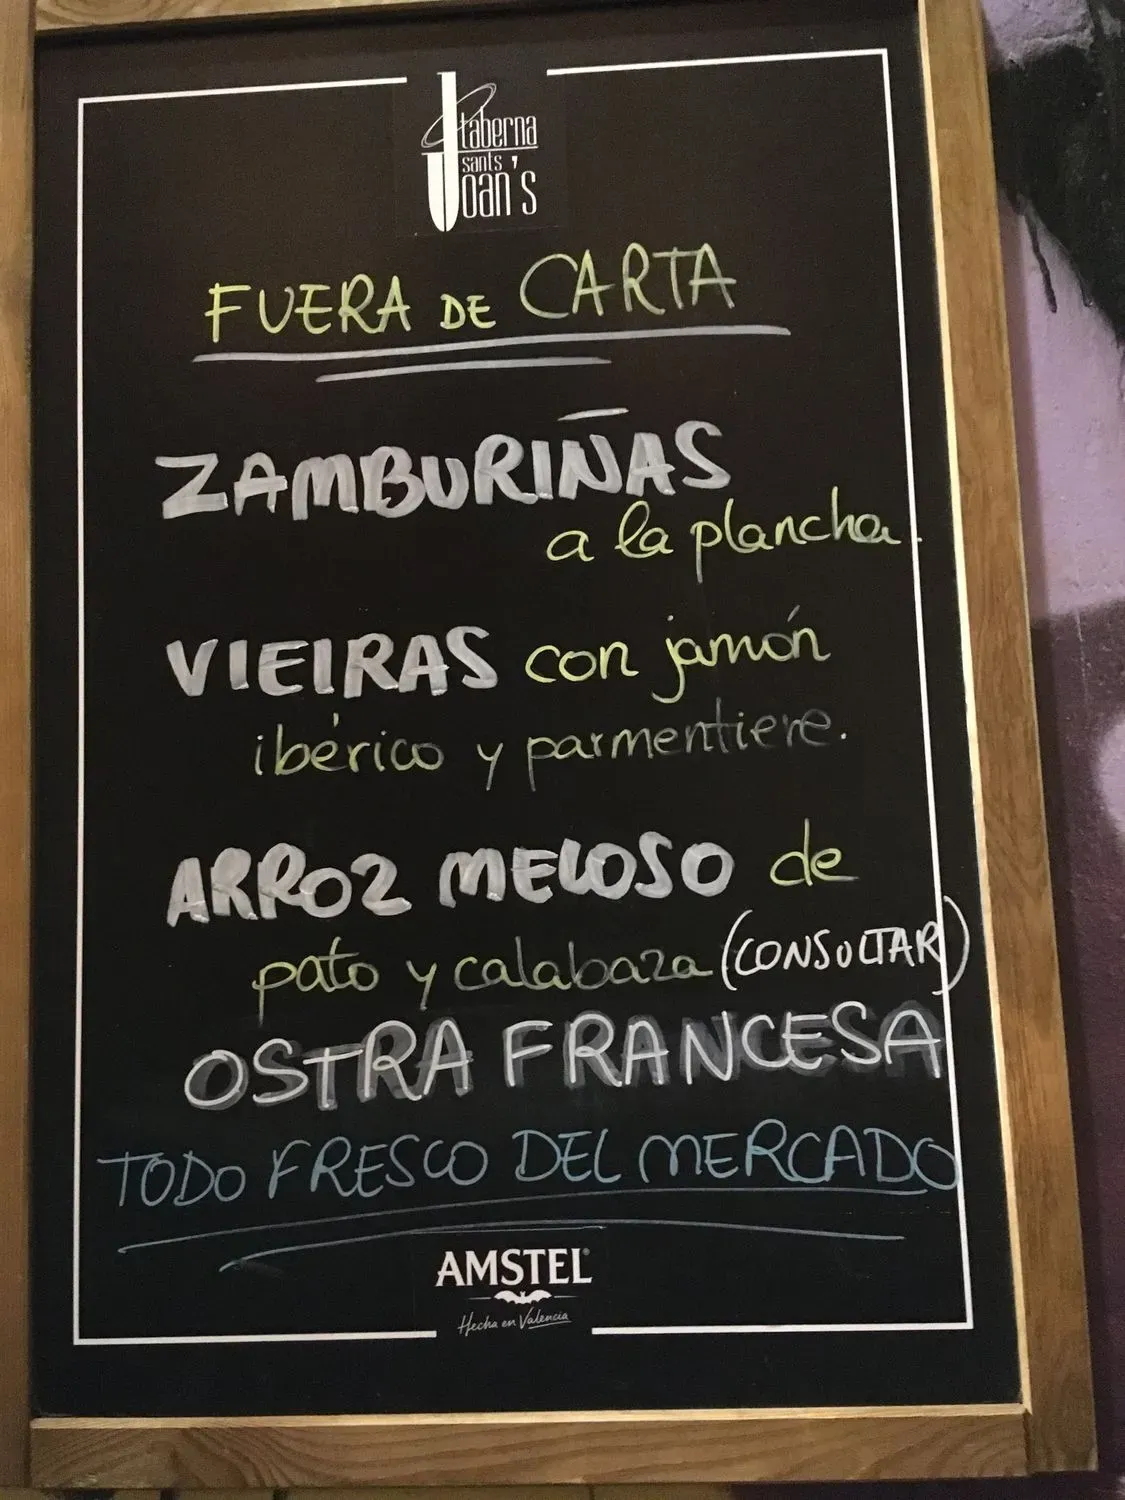 taberna
sants
Joan's
FUERA DE CARTA
ZAMBURIÑAS
a la plancha.
VIEIRAS con jamón
ibérico y parmentiere.
ARROZ MELOSO de
pato y calabaza (CONSULTAR)
OSTRA FRANCESA
TODO FRESCO DEL MERCADO
AMSTEL®
Hecha en Valencia